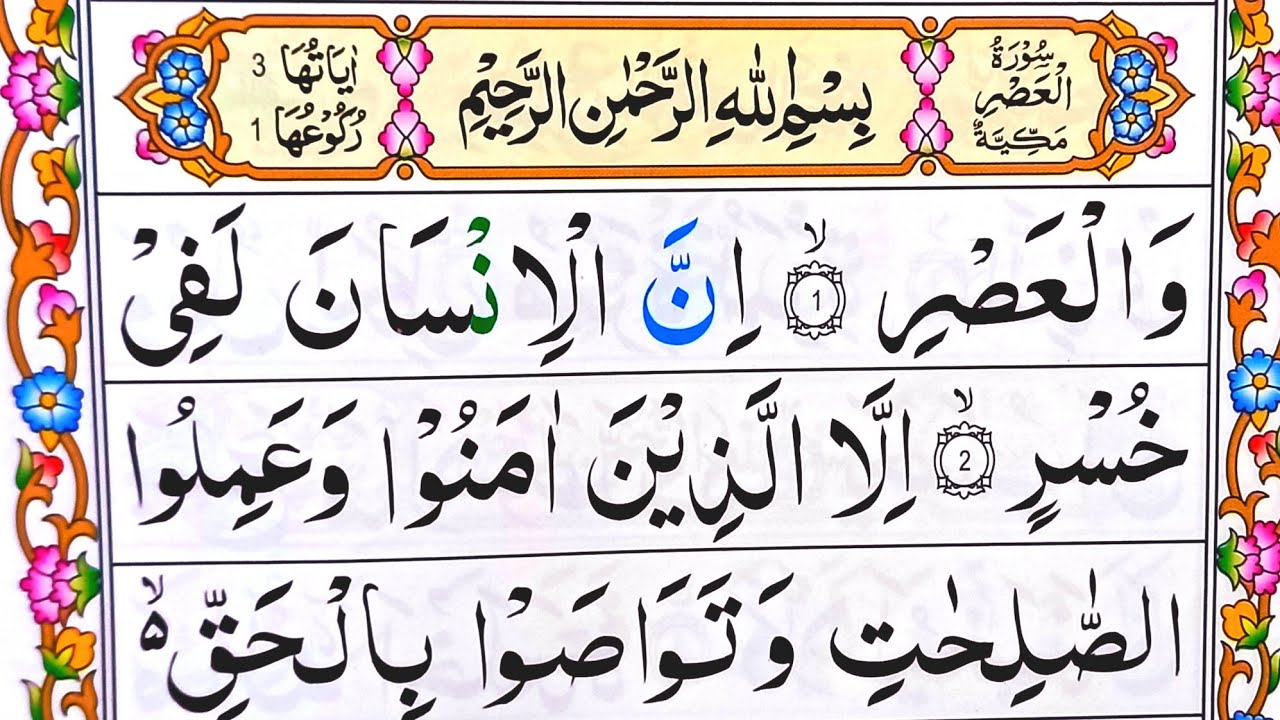 سُوْرَةُ
الْعَصْرِ
مَكِّيَّةٌ
بِسْمِ اللّٰهِ الرَّحْمٰنِ الرَّحِيْمِ
اٰيَاتُهَا 3
رُكُوْعُهَا 1
وَالْعَصْرِ ۙ 1 اِنَّ الْاِنْسَانَ لَفِیْ
خُسْرٍ ۙ 2 اِلَّا الَّذِيْنَ اٰمَنُوْا وَعَمِلُوا
الصّٰلِحٰتِ وَتَوَاصَوْا بِالْحَقِّ ۙ۵